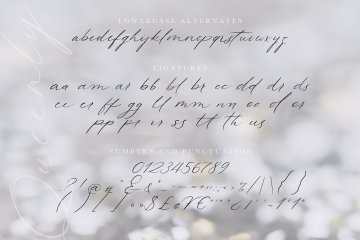 Queenly
LOWERCASE ALTERNATES
abcdefghijklmnopqrstuvwxyz
LIGATURES
aa am ar bb bl br cc dd dr ds
ee er ff gg ll mm nn oo ol or
pp pr ir ss tt th us
NUMBERS AND PUNCTUATION
0123456789